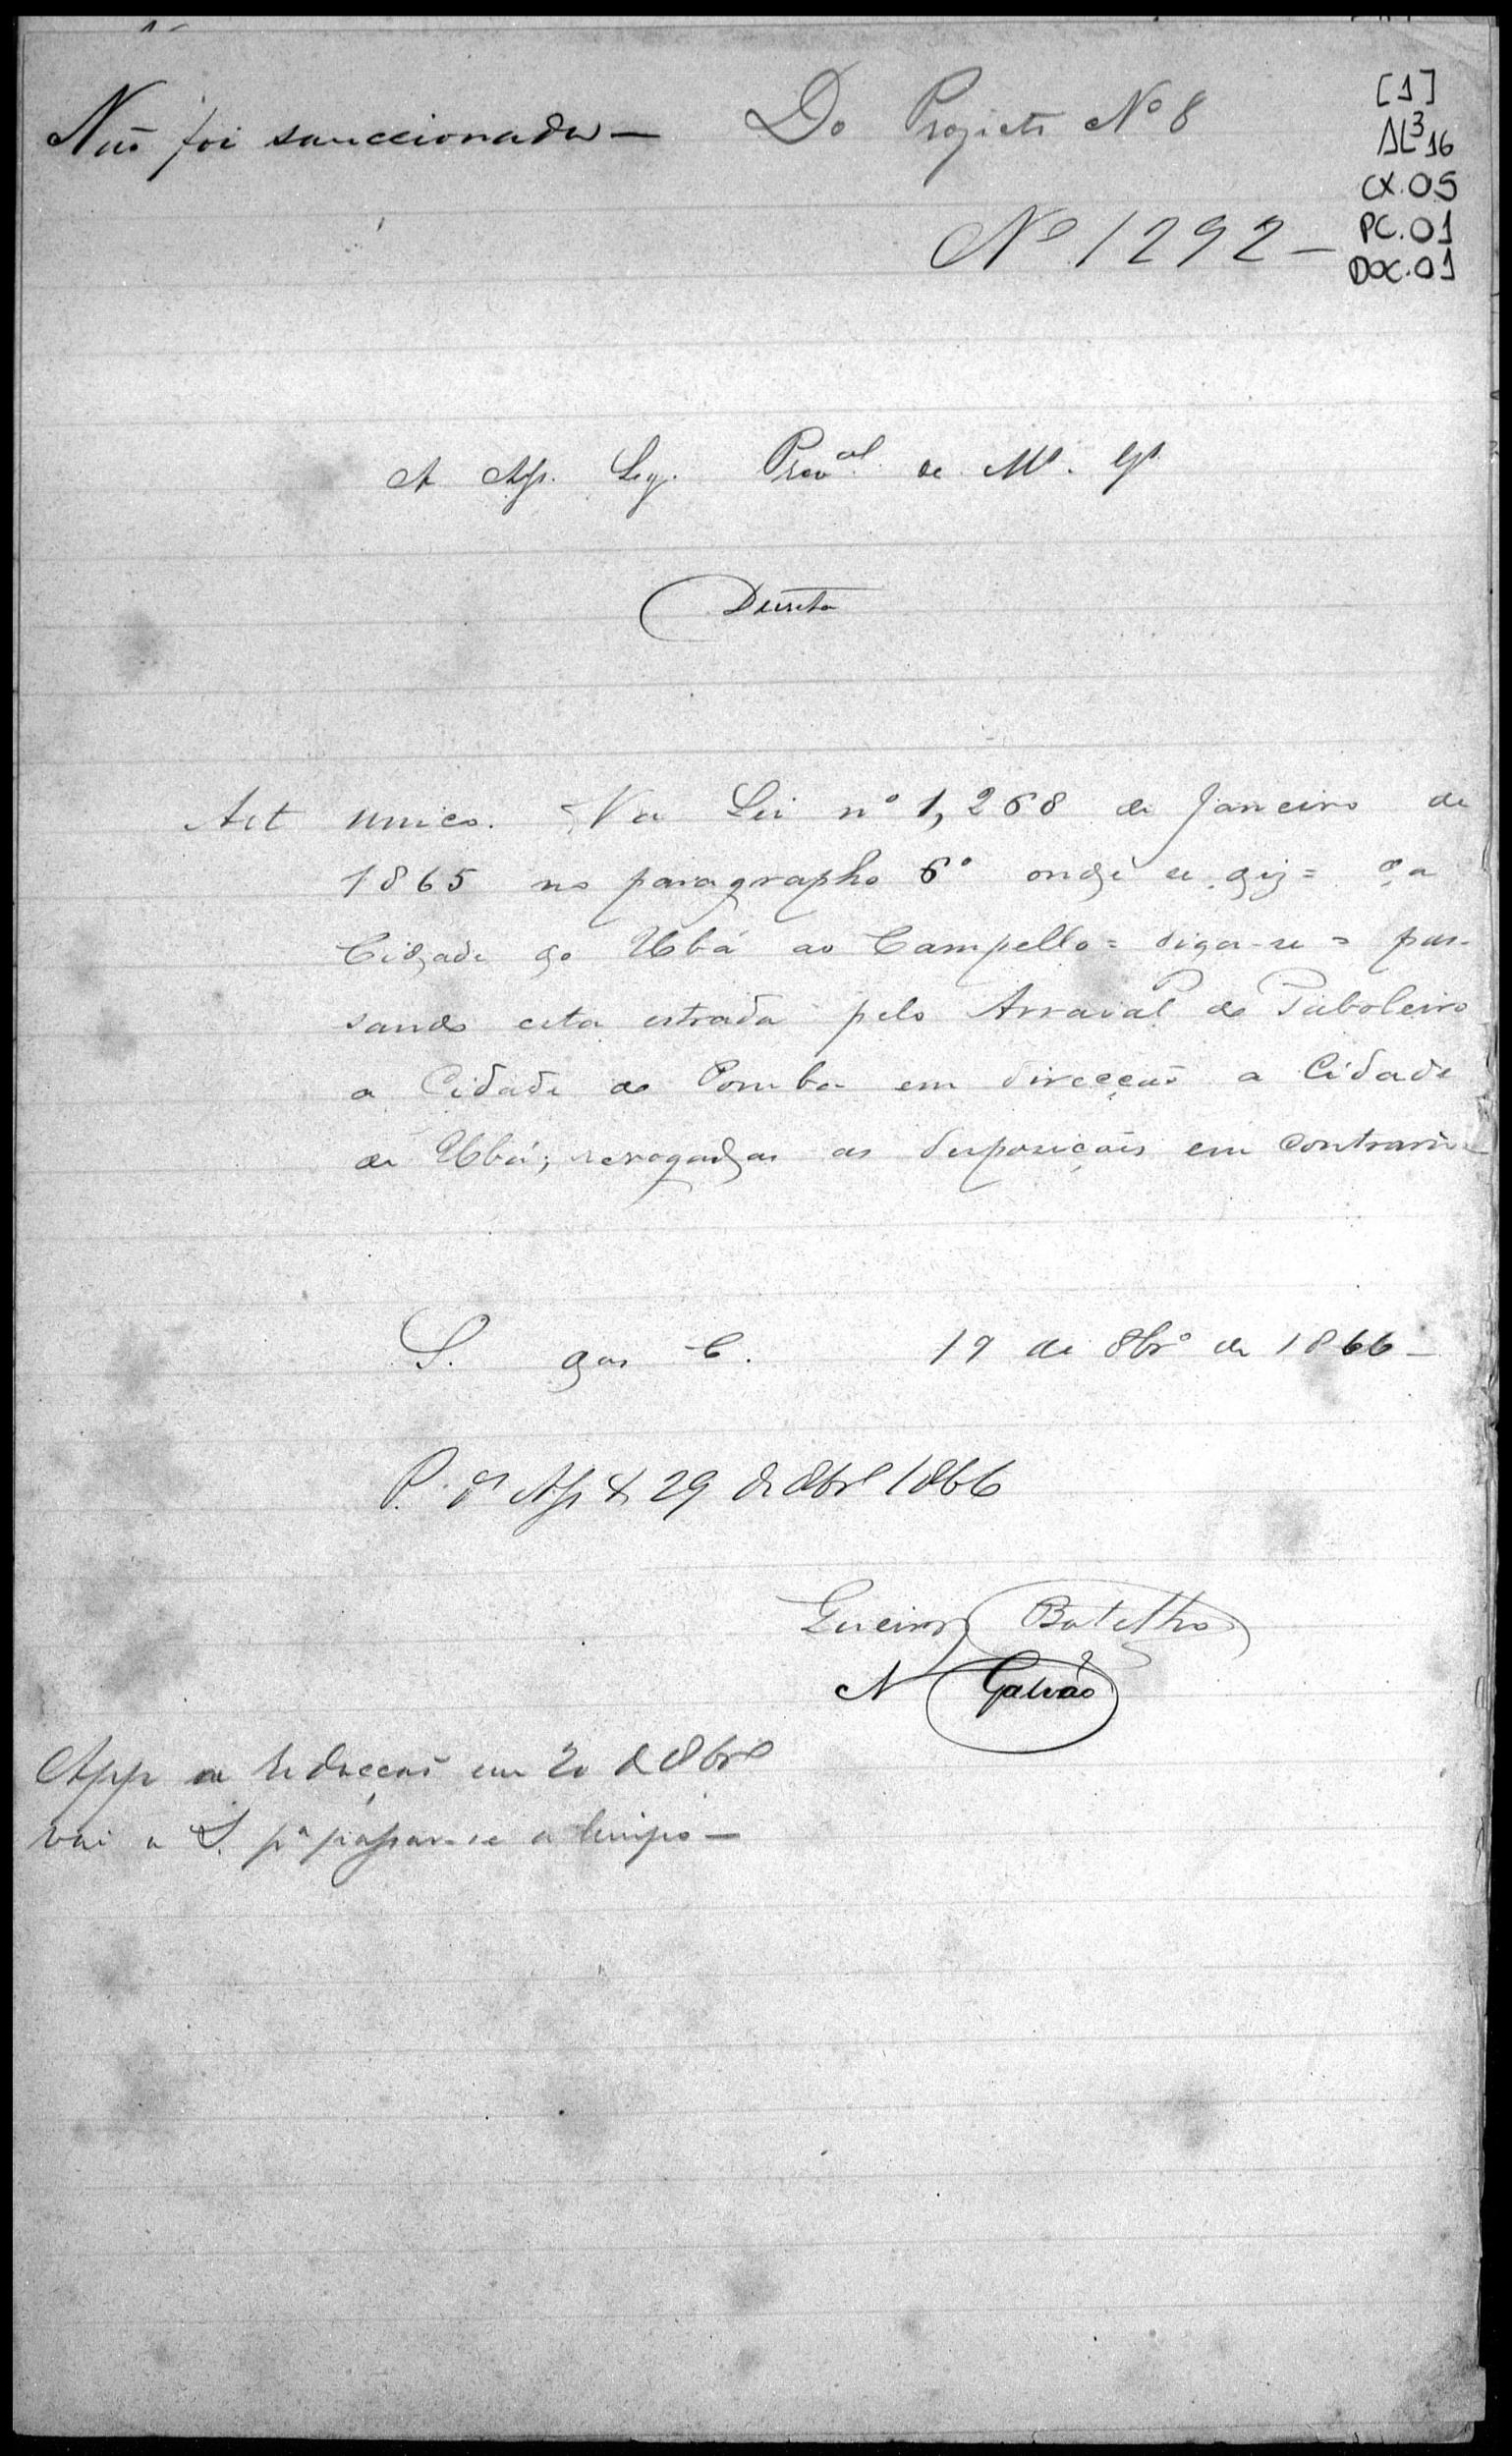 Não foi sanccionada — Do Projecto Nº 8
[1]
AL3 16
CX.05
PC.01
DOC.01
Nº 1292 —
A Ass. Leg. Provcal de Mˢ. Gˢ
Decreta
Art unico. Na Lei nº 1,268 de Janeiro de
1865 no paragrapho 6º onde se diz = da
Cidade do Ubá ao Campello = diga-se = pas-
sando esta estrada pelo Arraial do Taboleiro
a Cidade do Pomba em direcção a Cidade
de Ubá; revogadas as disposições em contrario
S. das C. 19 de 8brº de 1866 —
P. 29 de 8brº 1866
Botelho
N Galvão
App a redacção em 20 de 8brº
vai a S. pª passar-se a limpo —